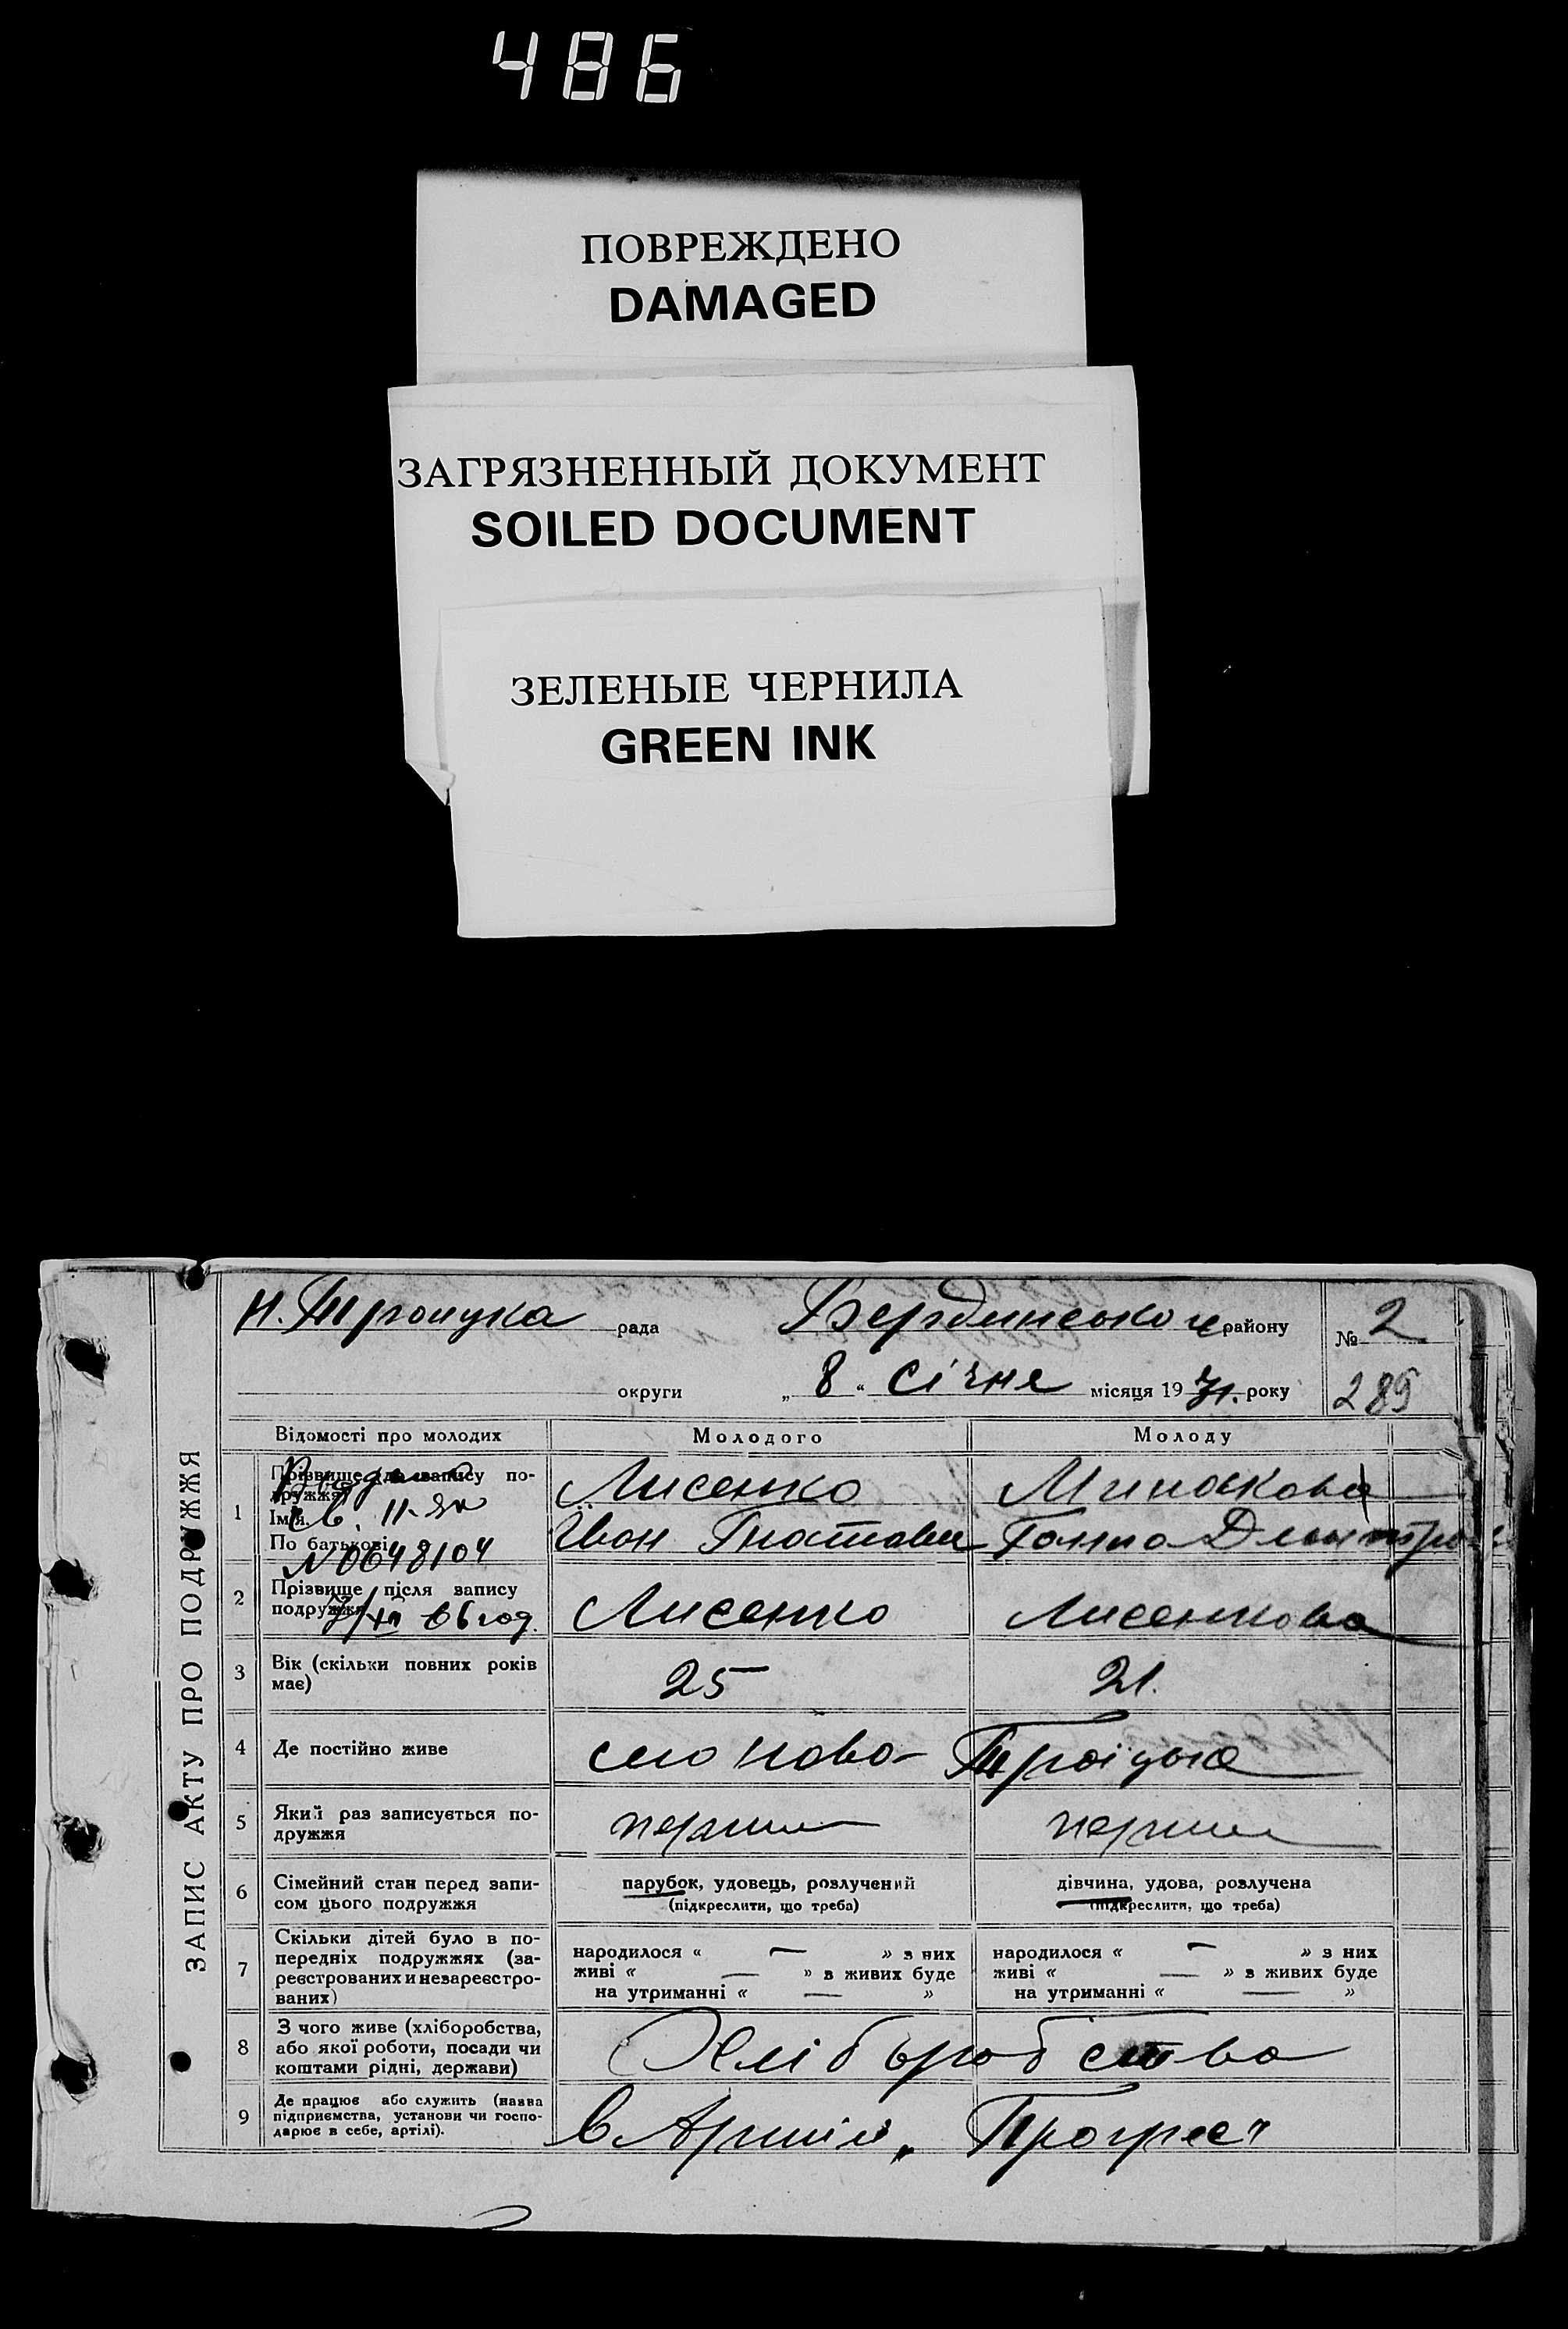 486
ПОВРЕЖДЕНО
DAMAGED
ЗАГРЯЗНЕННЫЙ ДОКУМЕНТ
SOILED DOCUMENT
ЗЕЛЕНЫЕ ЧЕРНИЛА
GREEN INK
ЗАПИС АКТУ ПРО ПОДРУЖЖЯ
Н. Троицка рада Бердинського району № 2
округи „ 8 “ Січня місяця 19 31. року 289
Відомості про молодих Молодого Молоду
1 Прізвище до запису по-дружжя Лисенко
Ім'я. ІІ-
По батькові Іван Гнатович Ганна Дмитров
N 0648104
2 Прізвище після запису подружжя Лисенко Лисенкова
7/XII 66 год.
3 Вік (скільки повних років має) 25 21.
4 Де постійно живе село Ново-Троіцька
5 Який раз записується по-дружжя перший перший
6 Сімейний стан перед запи-сом цього подружжя парубок, удовець, розлучений дівчина, удова, розлучена
(підкреслити, що треба) (підкреслити, що треба)
7 Скільки дітей було в по-передніх подружжях (за-реєстрованих и незареєстро-ваних) народилося « — » з них народилося « — » з них
живі « — » в живих буде живі « — » в живих буде
на утриманні « — » на утриманні « — »
8 З чого живе (хліборобства, або якої роботи, посади чи коштами рідні, держави) Хлібороб ство
9 Де працює або служить (назва підприємства, установи чи госпо-дарює в себе, артілі). в Артілі „Прогрес"